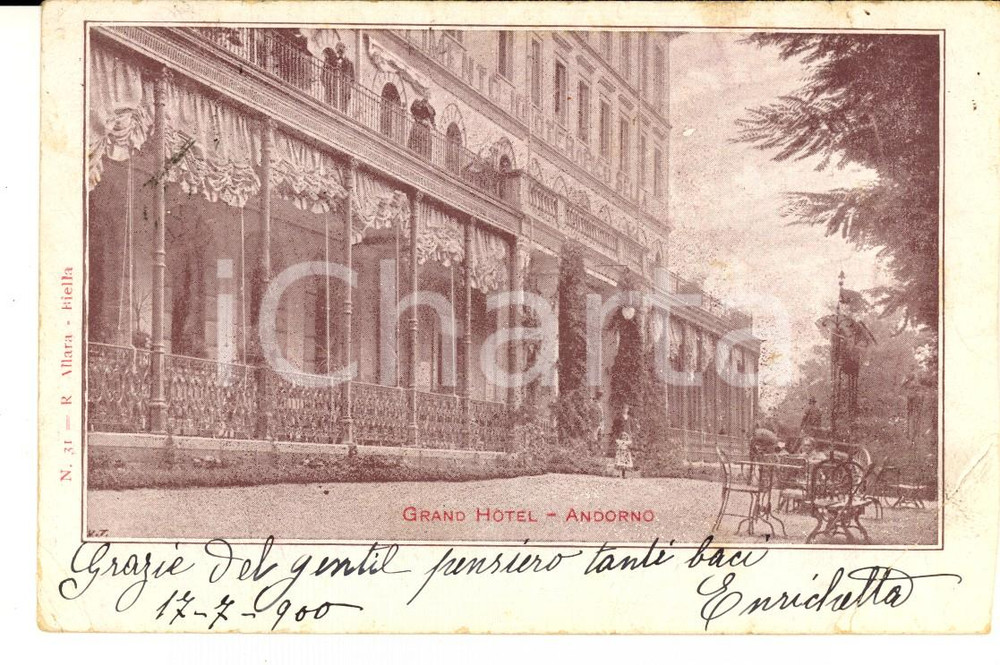 N. 31 — R. Allara - Biella
iCharta
GRAND HÔTEL - ANDORNO
Grazie del gentil pensiero tanti baci
Enrichetta
17-7-900